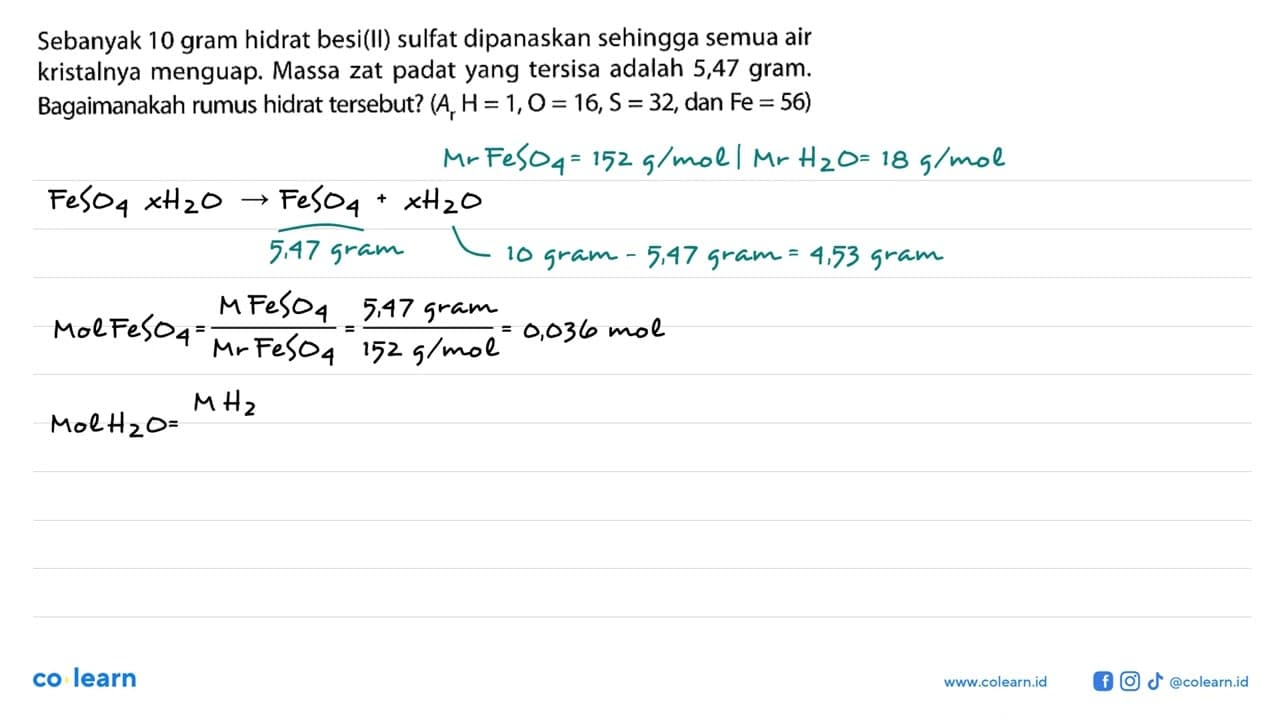 Sebanyak 10 gram hidrat besi(II) sulfat dipanaskan sehingga semua air
kristalnya menguap. Massa zat padat yang tersisa adalah 5,47 gram.
Bagaimanakah rumus hidrat tersebut? (Ar H = 1, O = 16, S = 32, dan Fe = 56)
Mr FeSO4 = 152 g/mol | Mr H2O = 18 g/mol
FeSO4 xH2O → FeSO4 + xH2O
5,47 gram 10 gram - 5,47 gram = 4,53 gram
Mol FeSO4 = M FeSO4 / Mr FeSO4 = 5,47 gram / 152 g/mol = 0,036 mol
Mol H2O = M H2
co learn www.colearn.id @colearn.id